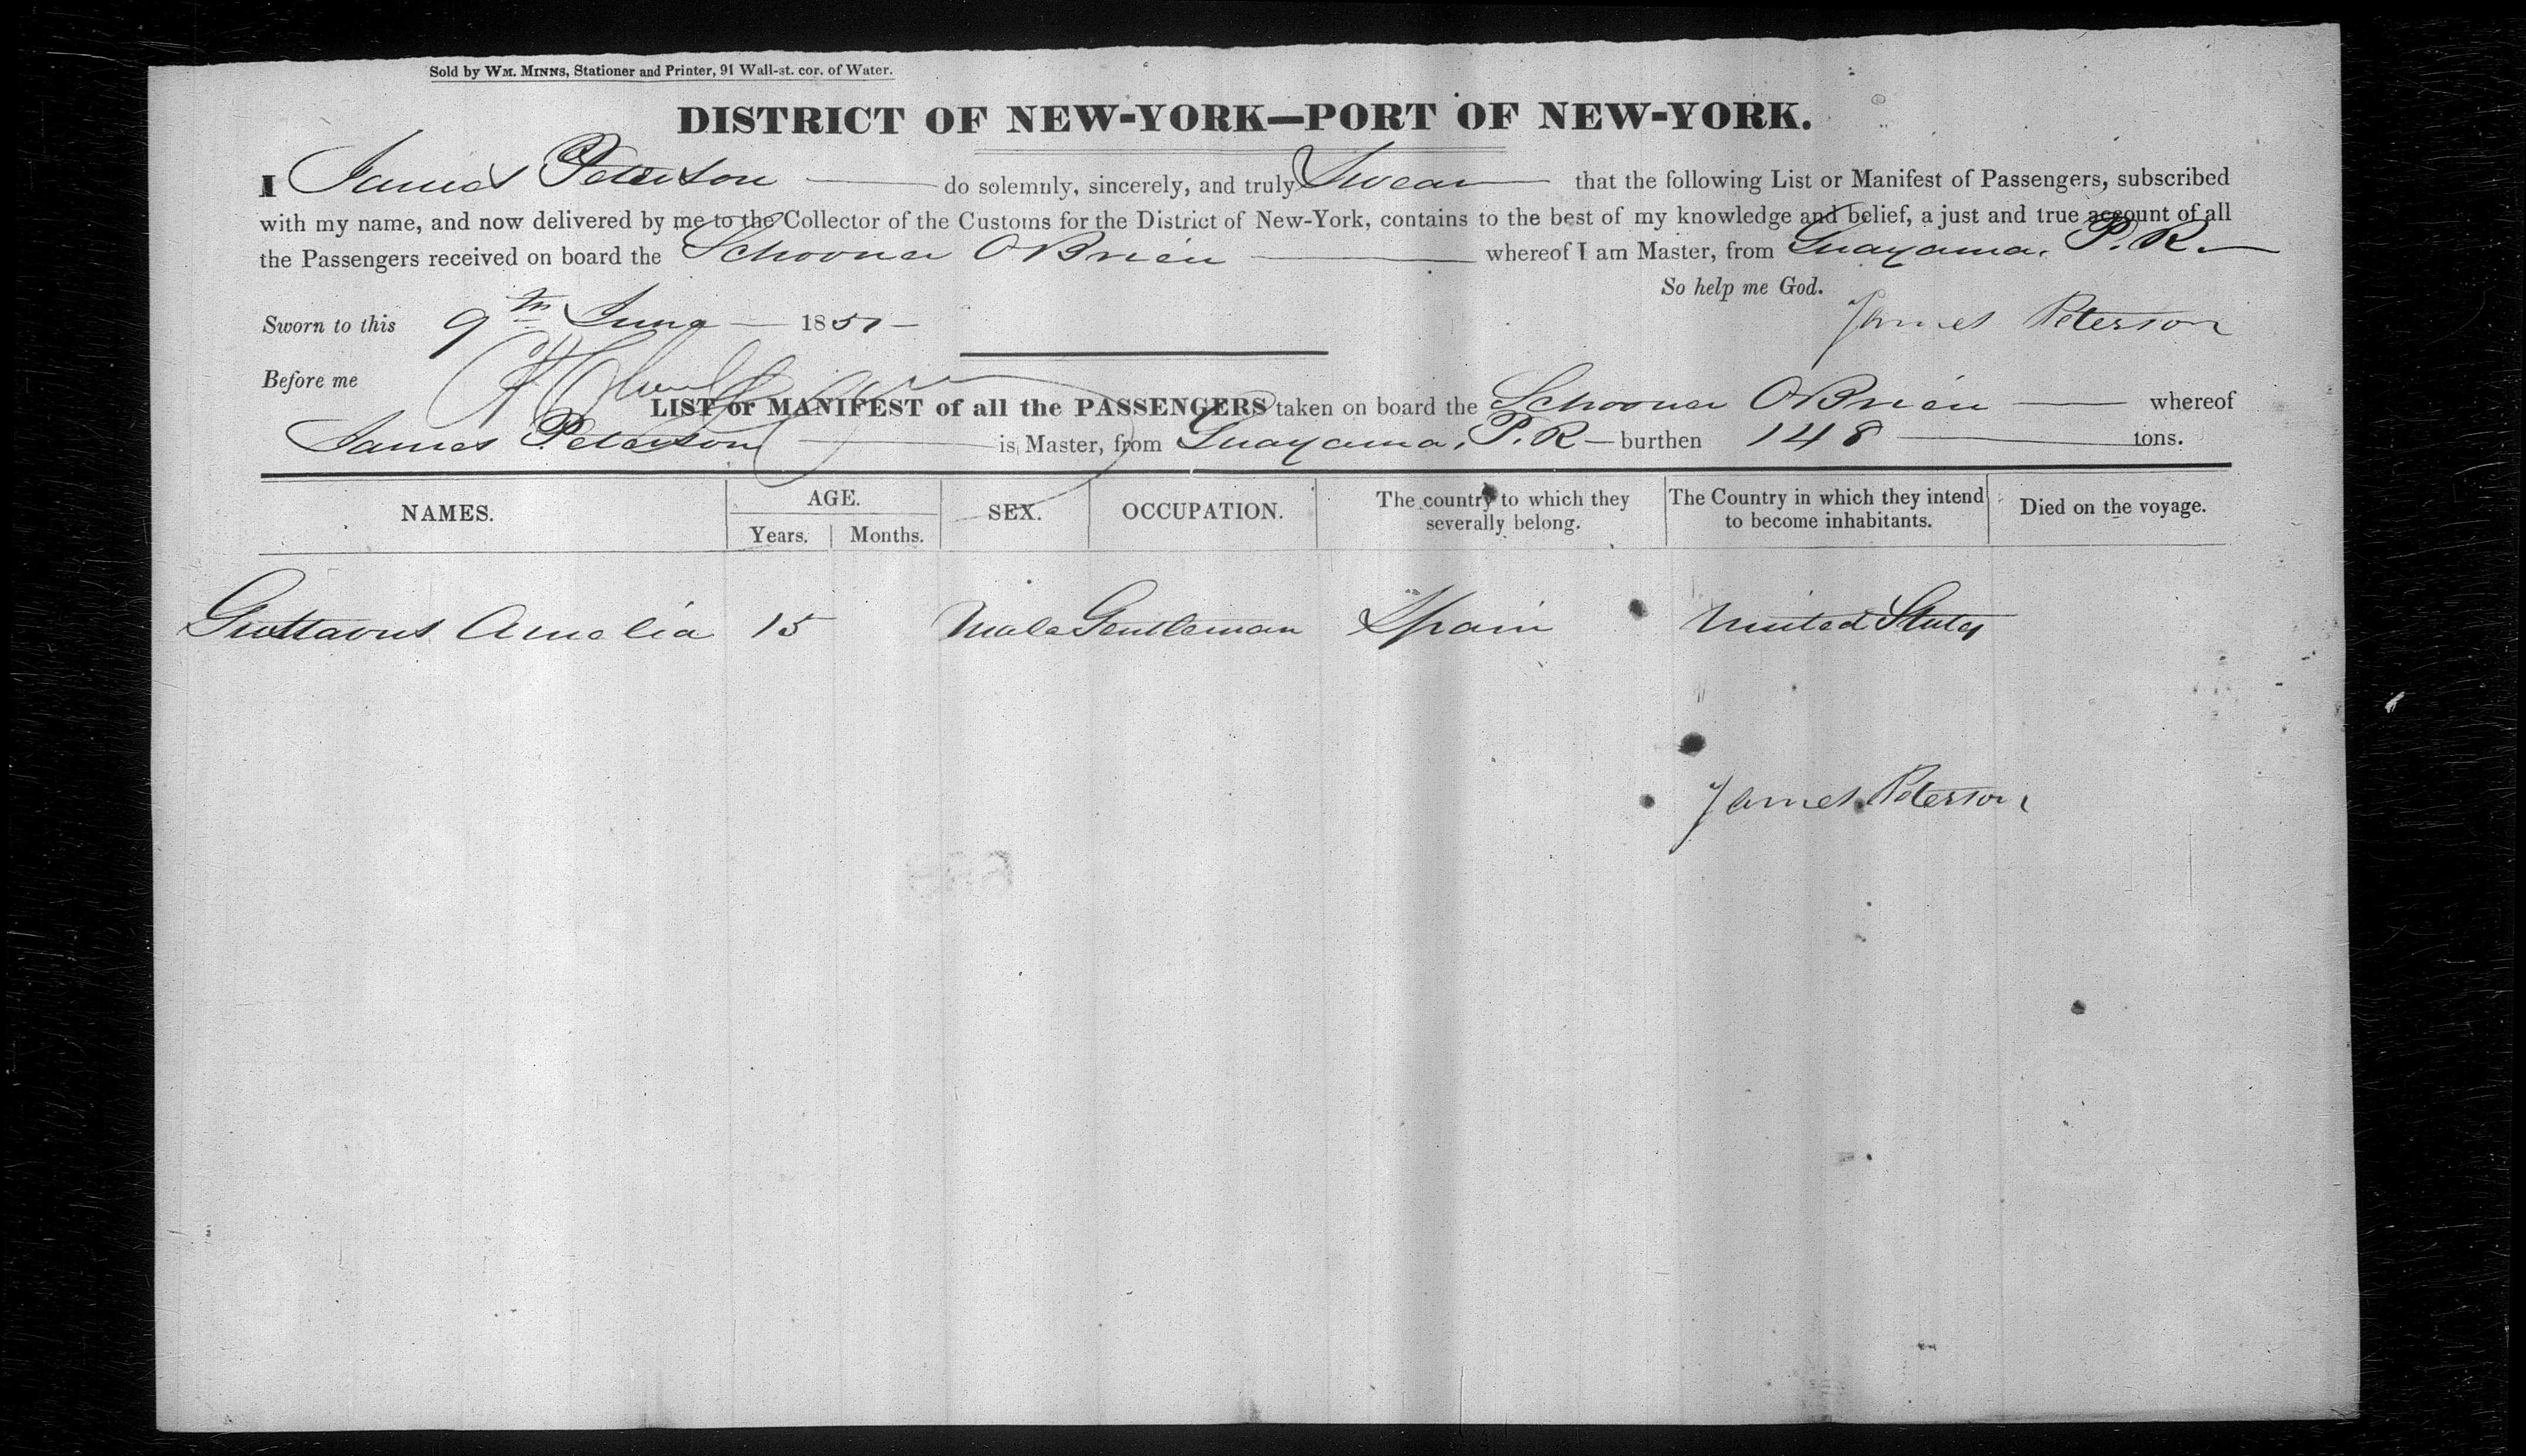 Sold by WM. MINNS, Stationer and Printer, 91 Wall-st. cor. of Water.
DISTRICT OF NEW-YORK—PORT OF NEW-YORK.
I James Peterson — do solemnly, sincerely, and truly Swear — that the following List or Manifest of Passengers, subscribed
with my name, and now delivered by me to the Collector of the Customs for the District of New-York, contains to the best of my knowledge and belief, a just and true account of all
the Passengers received on board the Schooner OBrien — whereof I am Master, from Guayama, P.R. —
So help me God.
Sworn to this 9th June — 1851 —
James Peterson
Before me
LIST or MANIFEST of all the PASSENGERS taken on board the Schooner OBrien — whereof
James Peterson — is Master, from Guayama, P.R — burthen 148 — tons.
NAMES. AGE. SEX. OCCUPATION. The country to which they severally belong. The Country in which they intend to become inhabitants. Died on the voyage.
Years. Months.
Gusttavus Amelia 15 Male Gentleman Spain United States
James Peterson